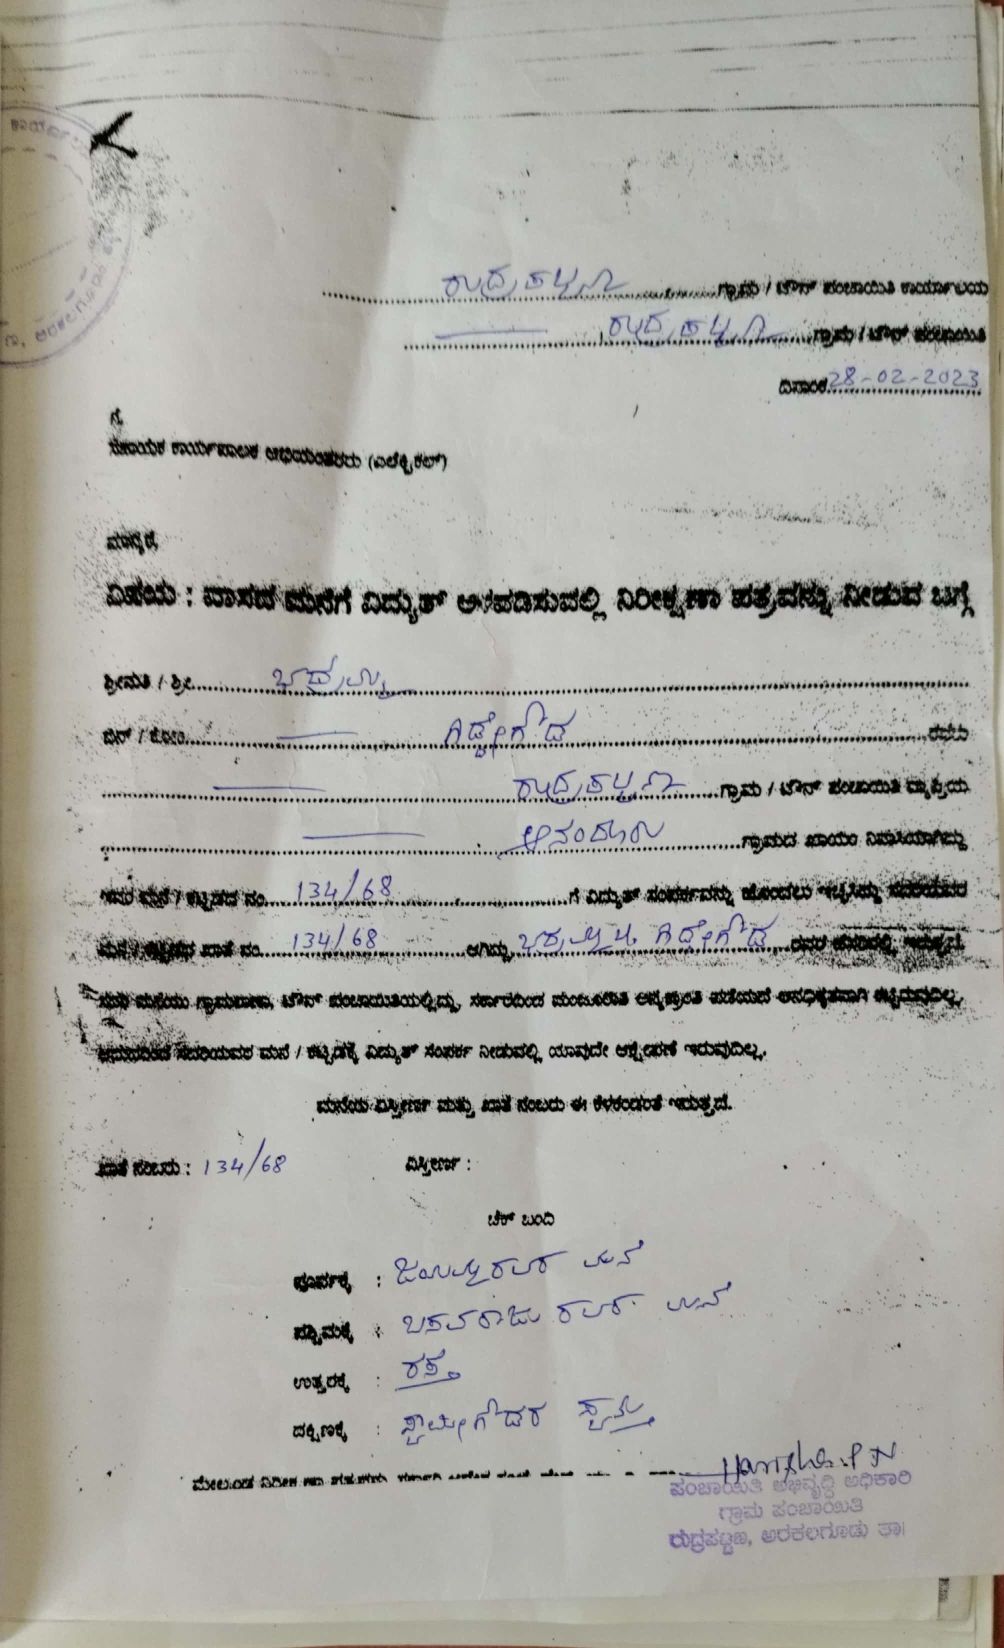 ರುದ್ರಪಟ್ಟಣ ಗ್ರಾಮ / ಟೌನ್ ಪಂಚಾಯಿತಿ ಕಾರ್ಯಾಲಯ
ರುದ್ರಪಟ್ಟಣ ಗ್ರಾಮ / ಟೌನ್ ಪಂಚಾಯಿತಿ
ದಿನಾಂಕ 28-02-2023
ಗೆ,
ಸಹಾಯಕ ಕಾರ್ಯಪಾಲಕ ಅಭಿಯಂತರರು (ಎಲೆಕ್ಟ್ರಿಕಲ್)
ಮಾನ್ಯರೆ,
ವಿಷಯ : ವಾಸದ ಮನೆಗೆ ವಿದ್ಯುತ್ ಅಳವಡಿಸುವಲ್ಲಿ ನಿರೀಕ್ಷಣಾ ಪತ್ರವನ್ನು ನೀಡುವ ಬಗ್ಗೆ
ಶ್ರೀಮತಿ / ಶ್ರೀ ಭದ್ರಮ್ಮ
ಬಿನ್ / ಕೋಂ ಗಿಡ್ಡೇಗೌಡ ರವರು
ರುದ್ರಪಟ್ಟಣ ಗ್ರಾಮ / ಟೌನ್ ಪಂಚಾಯಿತಿ ವ್ಯಾಪ್ತಿಯ
ಗ್ರಾಮದ ಖಾಯಂ ನಿವಾಸಿಯಾಗಿದ್ದು
ಇವರ ಮನೆ / ಕಟ್ಟಡದ ನಂ. 134/68 ಗೆ ವಿದ್ಯುತ್ ಸಂಪರ್ಕವನ್ನು ಹೊಂದಲು ಇಚ್ಛಿಸಿದ್ದು ಸದರಿಯವರ
ಮನೆ / ಕಟ್ಟಡದ ಖಾತೆ ನಂ. 134/68 ಆಗಿದ್ದು ಗಿಡ್ಡೇಗೌಡ ರವರ ಹೆಸರಿನಲ್ಲಿ ಇರುತ್ತದೆ.
ಸದರಿ ಮನೆಯು ಗ್ರಾಮಠಾಣಾ, ಟೌನ್ ಪಂಚಾಯಿತಿಯಲ್ಲಿದ್ದು, ಸರ್ಕಾರದಿಂದ ಮಂಜೂರಾತಿ ಪಡೆಯದೆ ಅನಧಿಕೃತವಾಗಿ ಕಟ್ಟಿರುವುದಿಲ್ಲ,
ಆದುದರಿಂದ ಸದರಿಯವರ ಮನೆ / ಕಟ್ಟಡಕ್ಕೆ ವಿದ್ಯುತ್ ಸಂಪರ್ಕ ನೀಡುವಲ್ಲಿ ಯಾವುದೇ ಆಕ್ಷೇಪಣೆ ಇರುವುದಿಲ್ಲ.
ಮನೆಯ ವಿಸ್ತೀರ್ಣ ಮತ್ತು ಖಾತೆ ನಂಬರು ಈ ಕೆಳಕಂಡಂತೆ ಇರುತ್ತದೆ.
ಖಾತೆ ನಂಬರು : 134/68 ವಿಸ್ತೀರ್ಣ :
ಚೆಕ್ ಬಂದಿ
ಪೂರ್ವಕ್ಕೆ : ಜಯಮ್ಮರವರ ಮನೆ
ಪಶ್ಚಿಮಕ್ಕೆ : ಬಸವರಾಜು ರವರ ಮನೆ
ಉತ್ತರಕ್ಕೆ : ರಸ್ತೆ
ದಕ್ಷಿಣಕ್ಕೆ : ಸ್ವಾಮೀಗೌಡರ ಸ್ವತ್ತು
ಮೇಲ್ಕಂಡ
ಪಂಚಾಯಿತಿ ಅಭಿವೃದ್ಧಿ ಅಧಿಕಾರಿ
ಗ್ರಾಮ ಪಂಚಾಯಿತಿ
ರುದ್ರಪಟ್ಟಣ, ಅರಕಲಗೂಡು ತಾ।